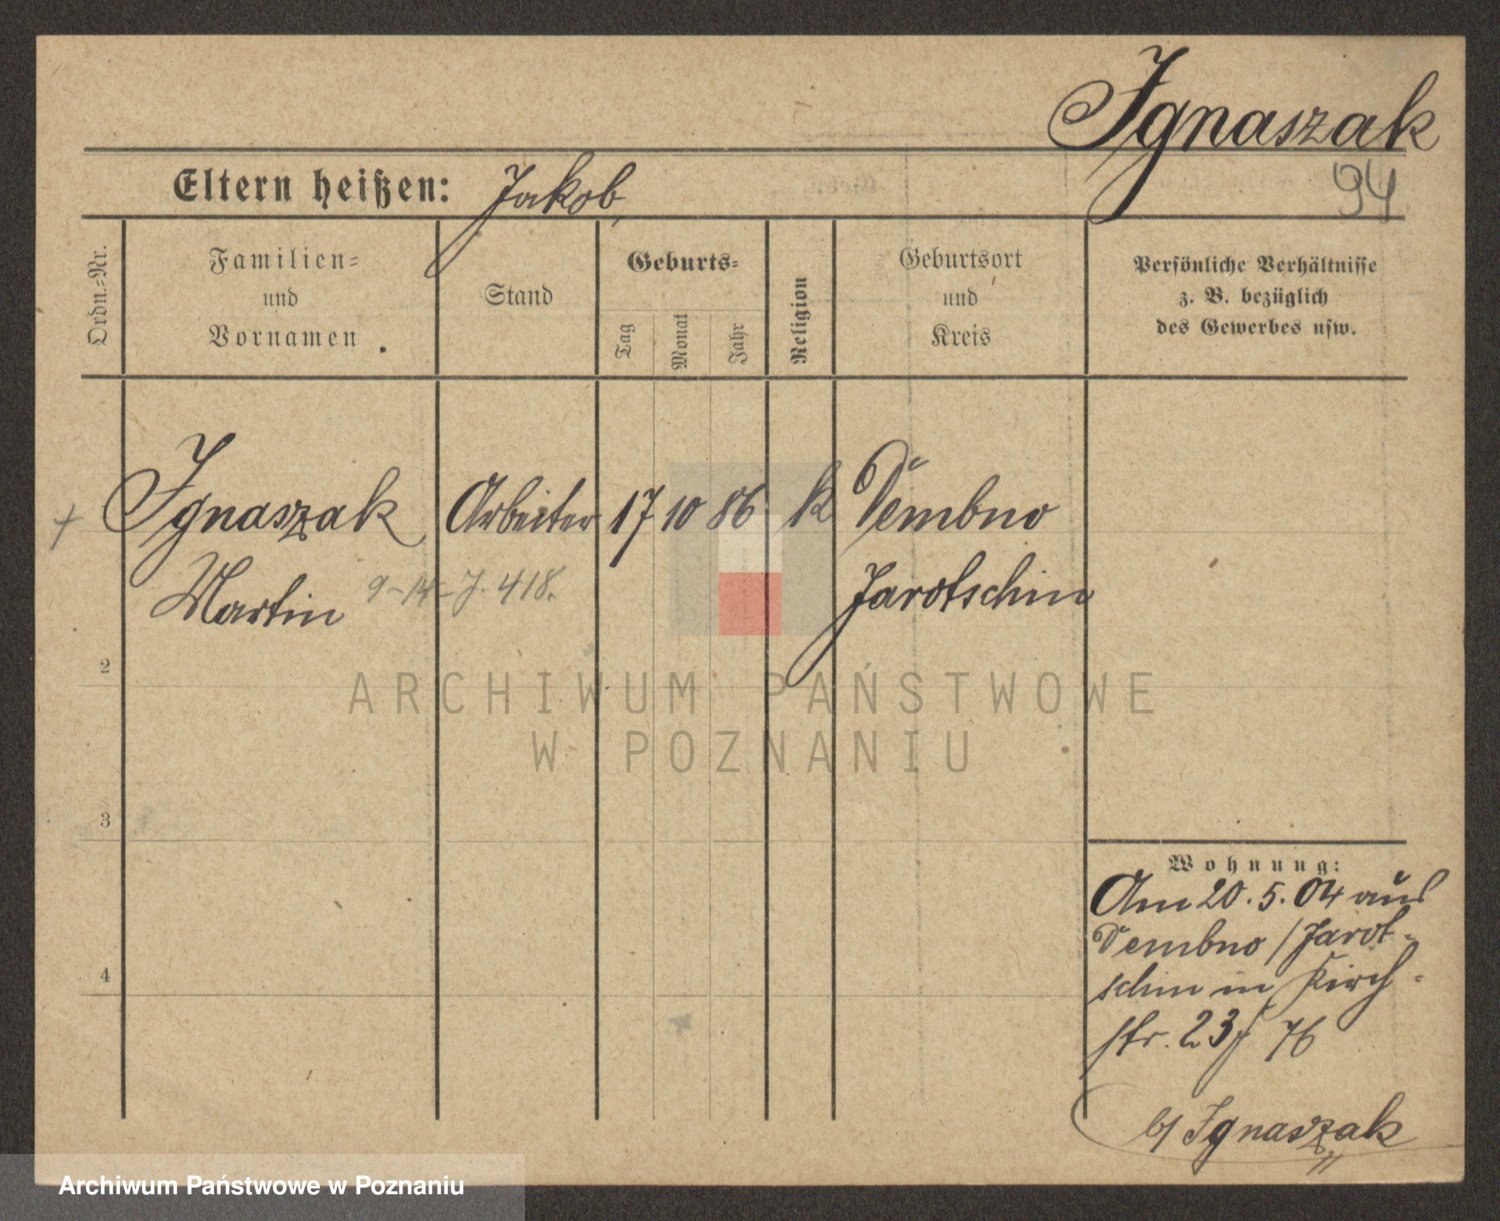 Ignaszak
94
Eltern heißen: Jakob,
Ordn.-Nr.
Familien-
und
Vornamen
Stand
Geburts-
Tag
Monat
Jahr
Religion
Geburtsort
und
Kreis
Persönliche Verhältnisse
z. B. bezüglich
des Gewerbes usw.
+ Ignaszak Arbeiter 17 10 86 k Dembno
Martin 9-14-J. 418. Jarotschin
2
3
4
Wohnung:
Am 20.5.04 aus
Dembno / Jarot-
schin in Kirch-
str. 23
b/ Ignaszak
ARCHIWUM PAŃSTWOWE
W POZNANIU
Archiwum Państwowe w Poznaniu